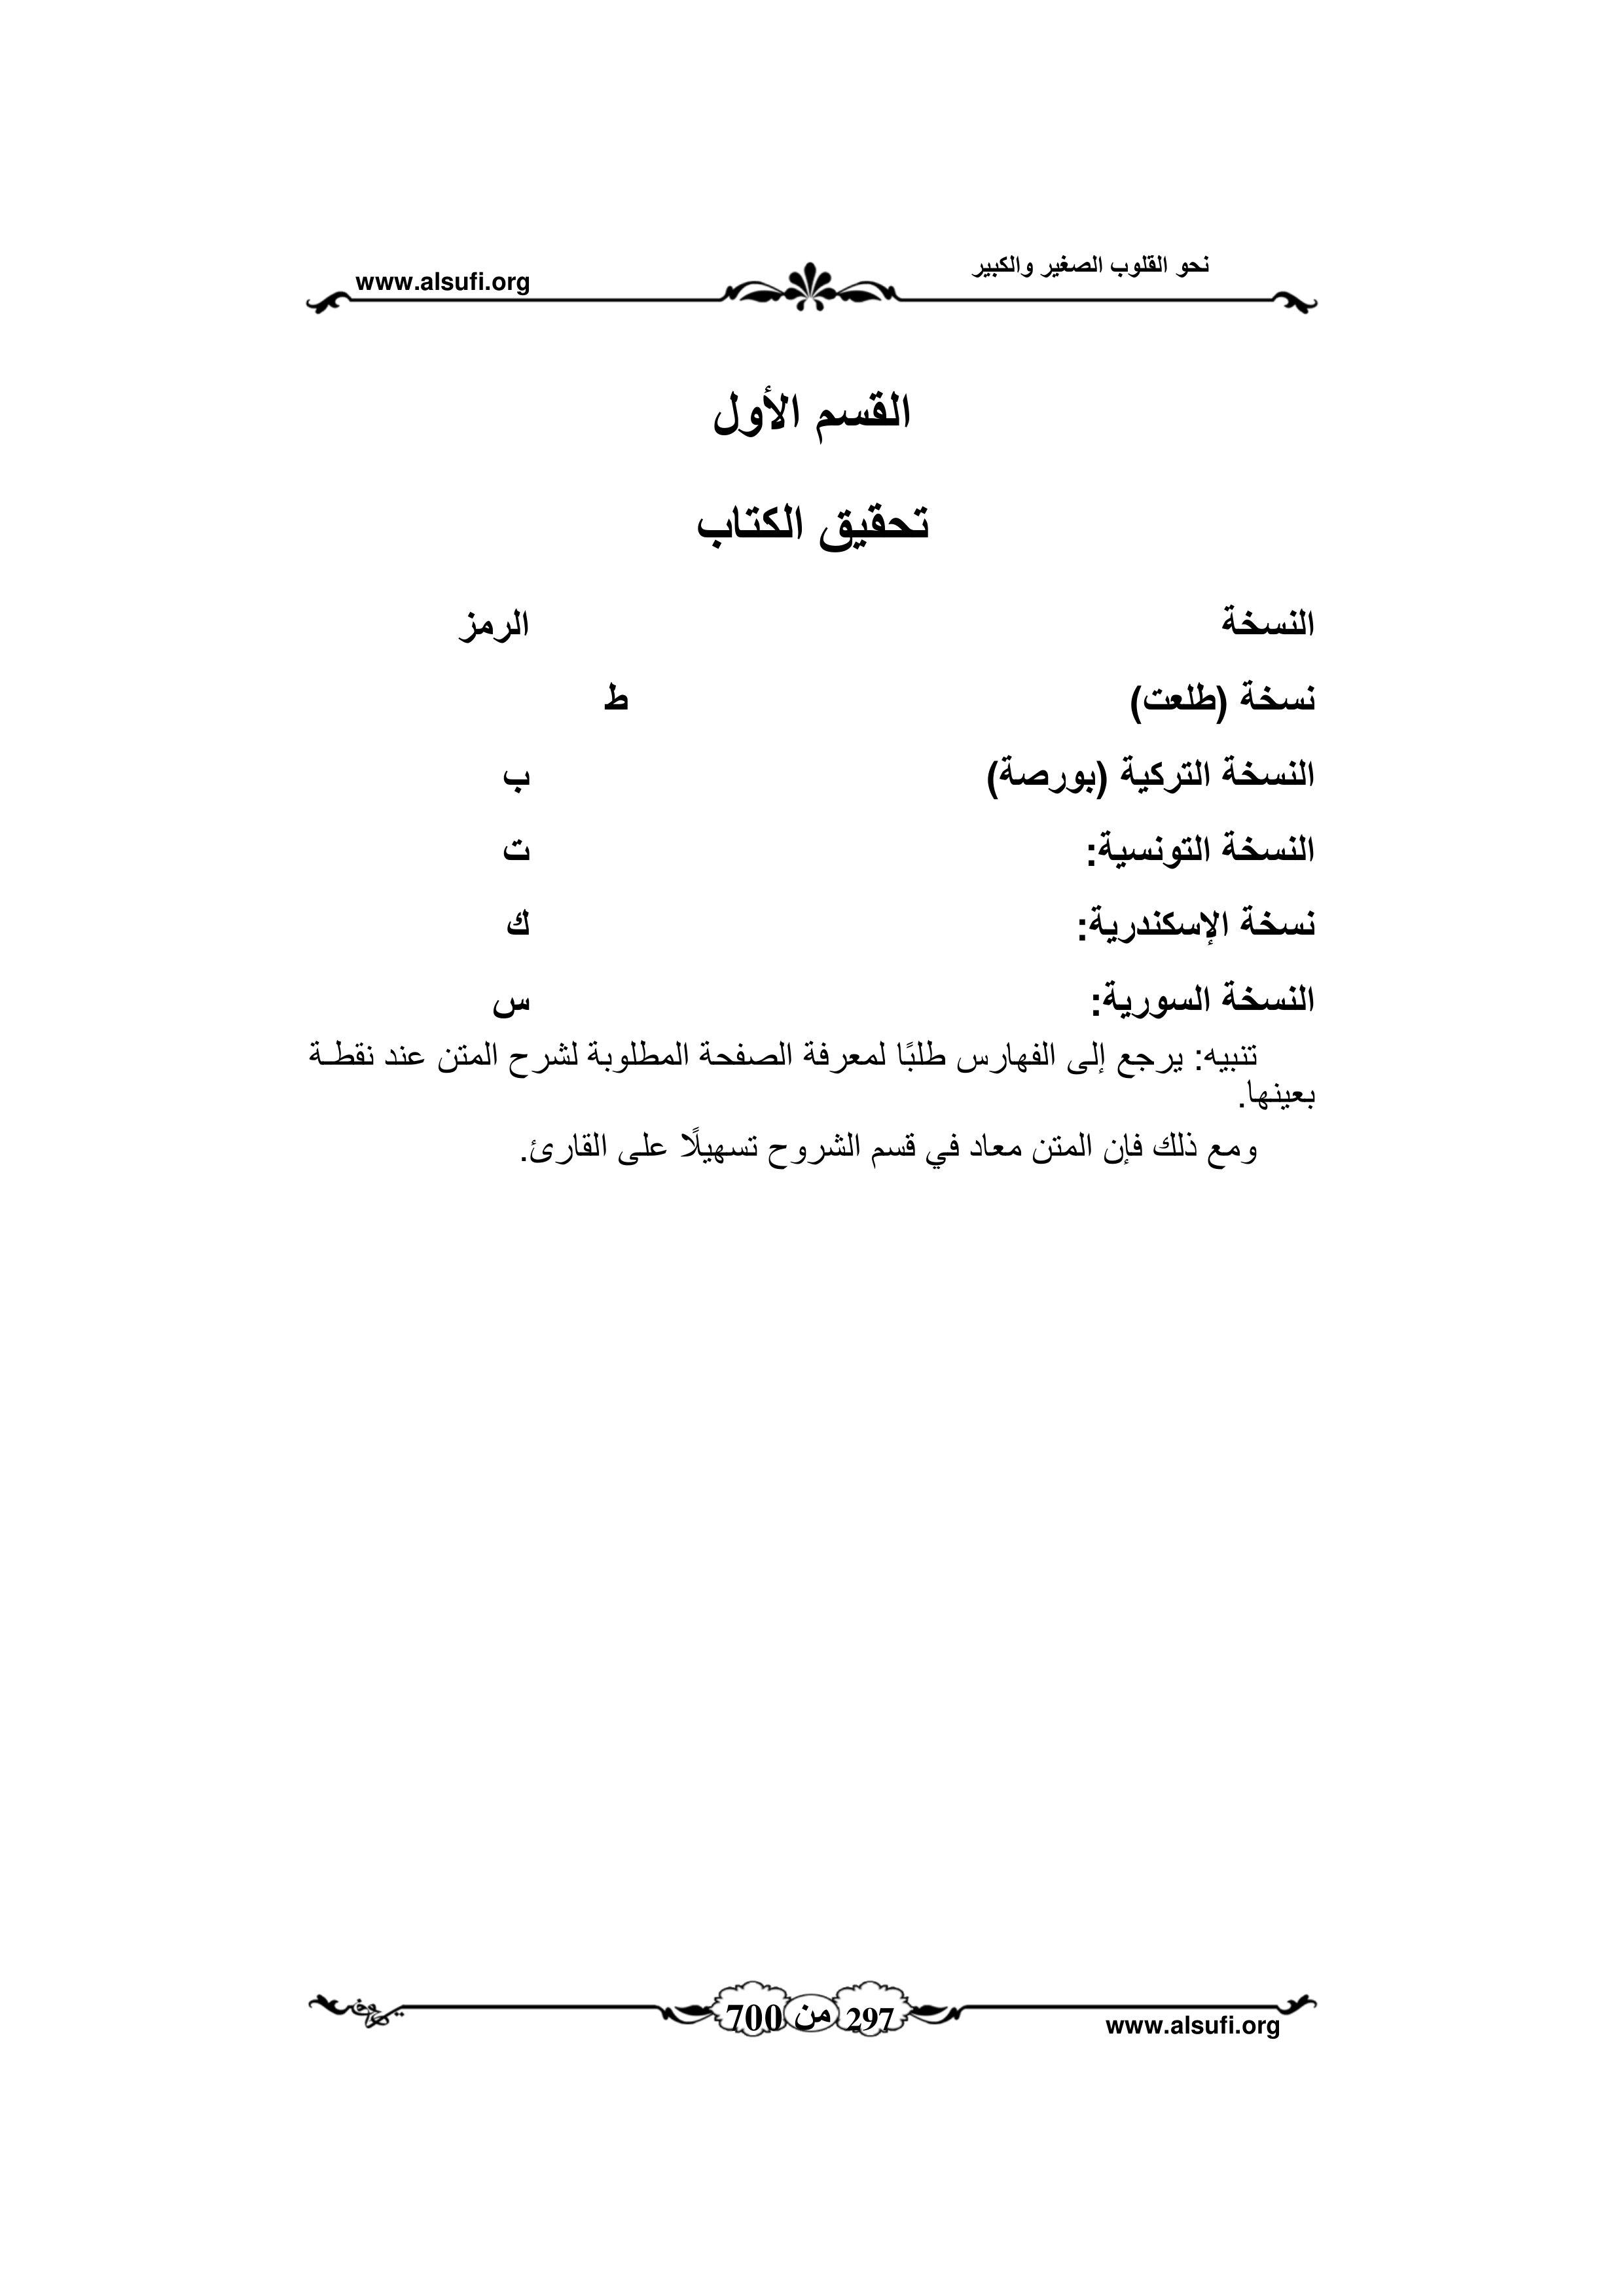 نحو القلوب الصغير والكبير www.alsufi.org
القسم الأول
تحقيق الكتاب
النسخة الرمز
نسخة (طلعت) ط
النسخة التركية (بورصة) ب
النسخة التونسية: ت
نسخة الإسكندرية: ك
النسخة السورية: س
تنبيه: يرجع إلى الفهارس طلبًا لمعرفة الصفحة المطلوبة لشرح المتن عند نقطـة
بعينها.
ومع ذلك فإن المتن معاد في قسم الشروح تسهيلًا على القارئ.
297 من 700
www.alsufi.org